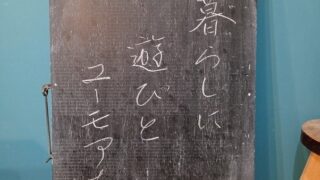 暮らしに
遊びと
ユーモアを